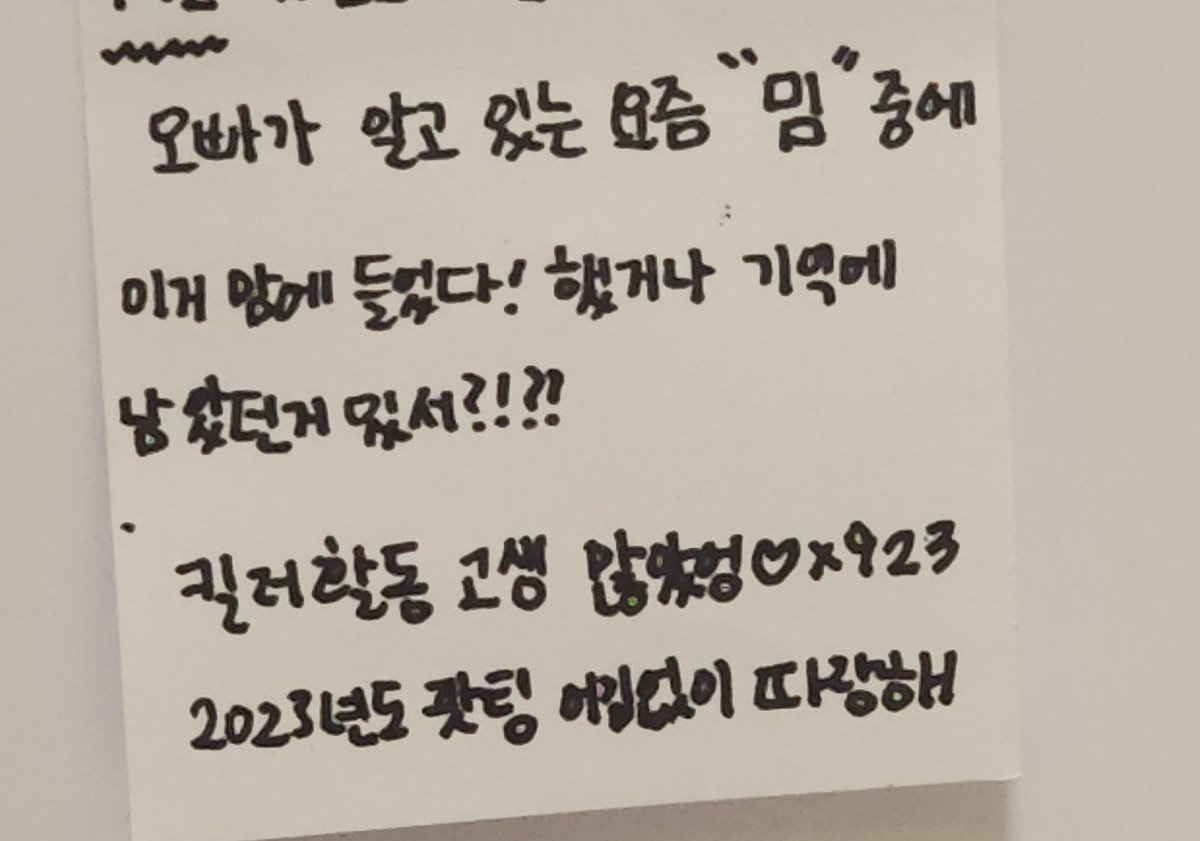 오빠가 알고 있는 요즘 "밈" 중에
이거 맘에 들었다! 했거나 기억에
남았던게 있서?!?!
킬러활동 고생 많았엉♡x923
2023년도 팟팅 어김없이 따랑해